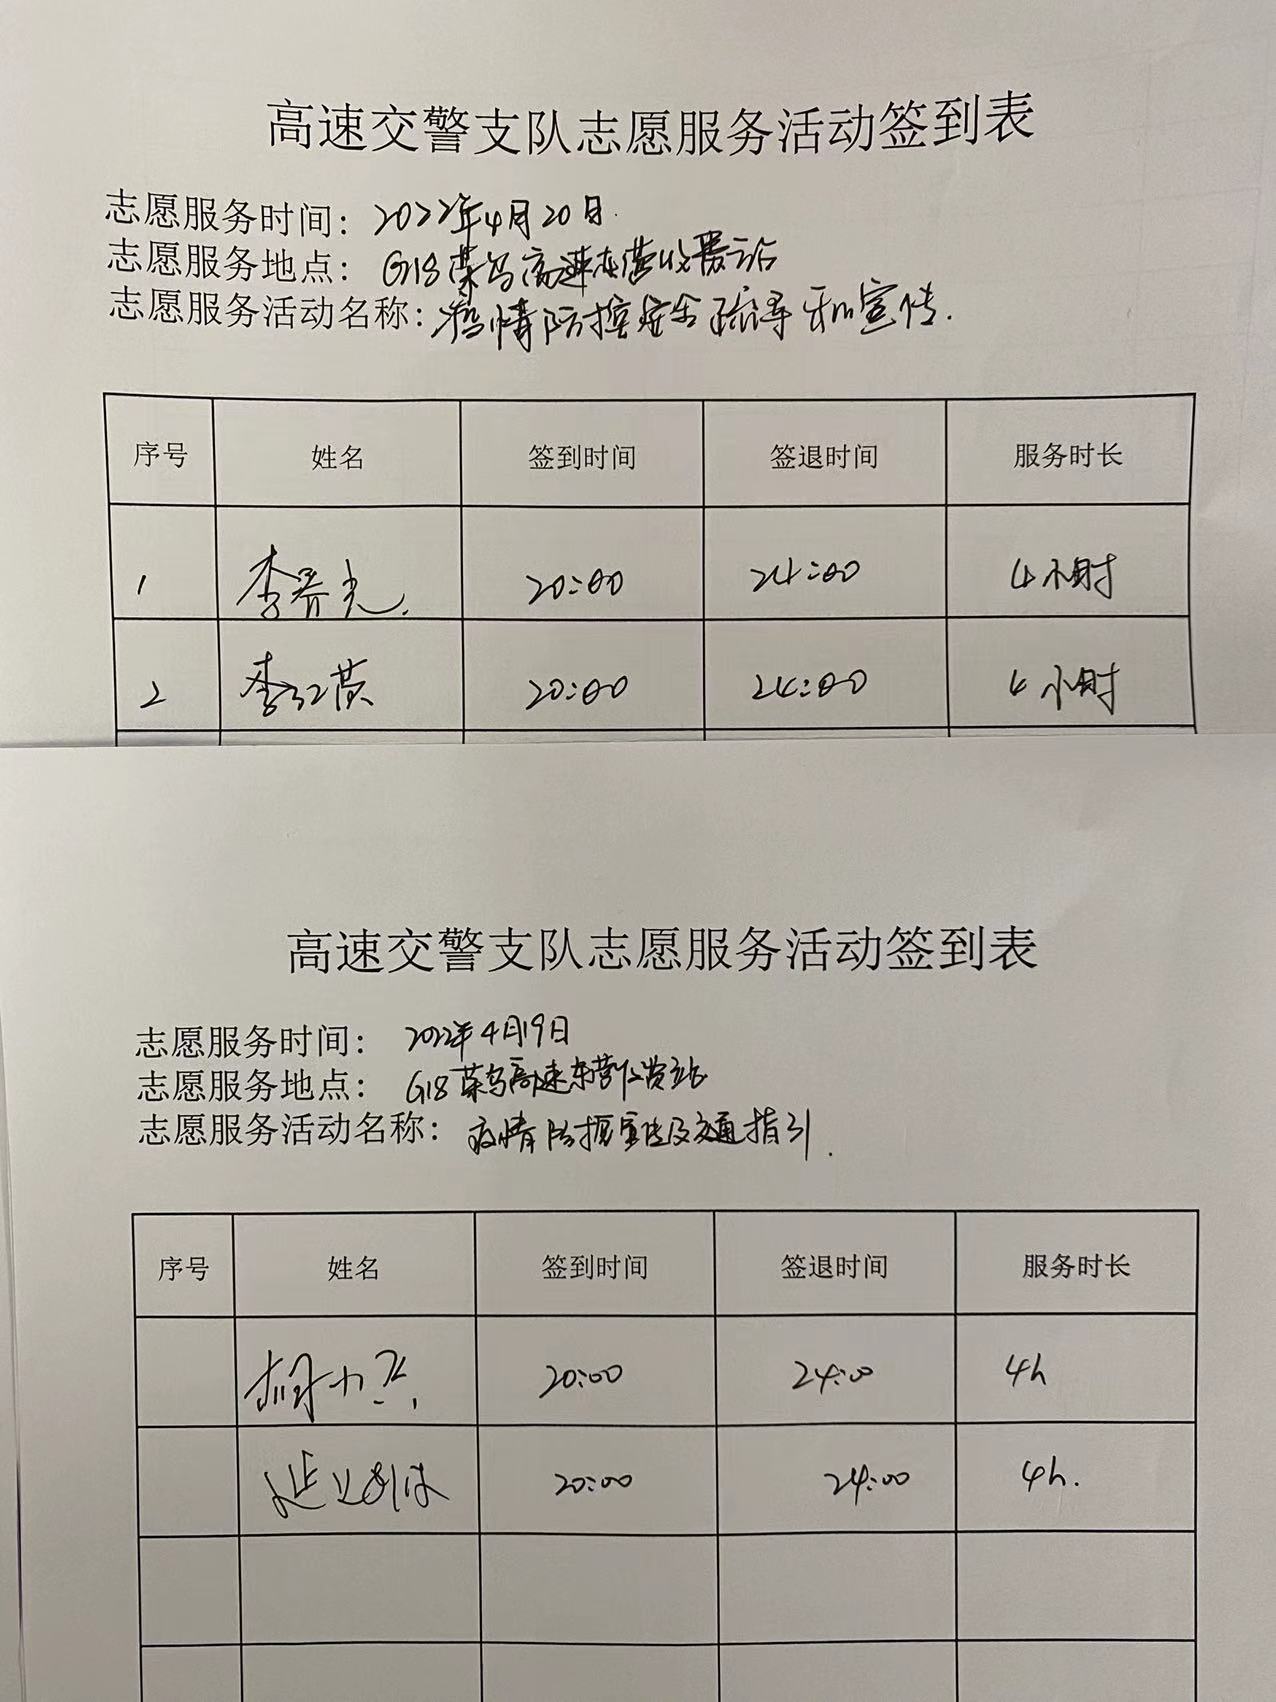 高速交警支队志愿服务活动签到表
志愿服务时间：2022年4月20日.
志愿服务地点：G18荣乌高速东营收费站
志愿服务活动名称：疫情防控安全疏导和宣传.
序号 姓名 签到时间 签退时间 服务时长
1 李 光. 20:00 24:00 4小时
2 李红英 20:00 24:00 4小时
高速交警支队志愿服务活动签到表
志愿服务时间：2022年4月19日
志愿服务地点：G18荣乌高速东营收费站
志愿服务活动名称：疫情防控宣传及交通指引.
序号 姓名 签到时间 签退时间 服务时长
20:00 24:00 4h
20:00 24:00 4h.